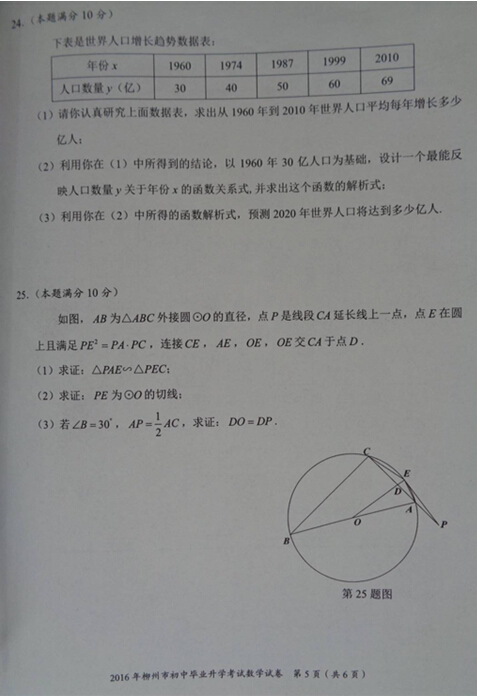 24.（本题满分 10 分）
下表是世界人口增长趋势数据表：
年份 x 1960 1974 1987 1999 2010
人口数量 y（亿） 30 40 50 60 69
（1）请你认真研究上面数据表，求出从 1960 年到 2010 年世界人口平均每年增长多少
亿人；
（2）利用你在（1）中所得到的结论，以 1960 年 30 亿人口为基础，设计一个最能反
映人口数量 y 关于年份 x 的函数关系式,并求出这个函数的解析式；
（3）利用你在（2）中所得的函数解析式，预测 2020 年世界人口将达到多少亿人.
25.（本题满分 10 分）
如图，AB 为△ABC 外接圆⊙O 的直径，点 P 是线段 CA 延长线上一点，点 E 在圆
上且满足 PE² = PA·PC，连接 CE，AE，OE，OE 交 CA 于点 D．
（1）求证：△PAE∽△PEC；
（2）求证：PE 为⊙O 的切线；
（3）若∠B=30°，AP=1/2 AC，求证：DO=DP．
C
E
D
A
O
P
B
第 25 题图
2016 年柳州市初中毕业升学考试数学试卷 第 5 页（共 6 页）